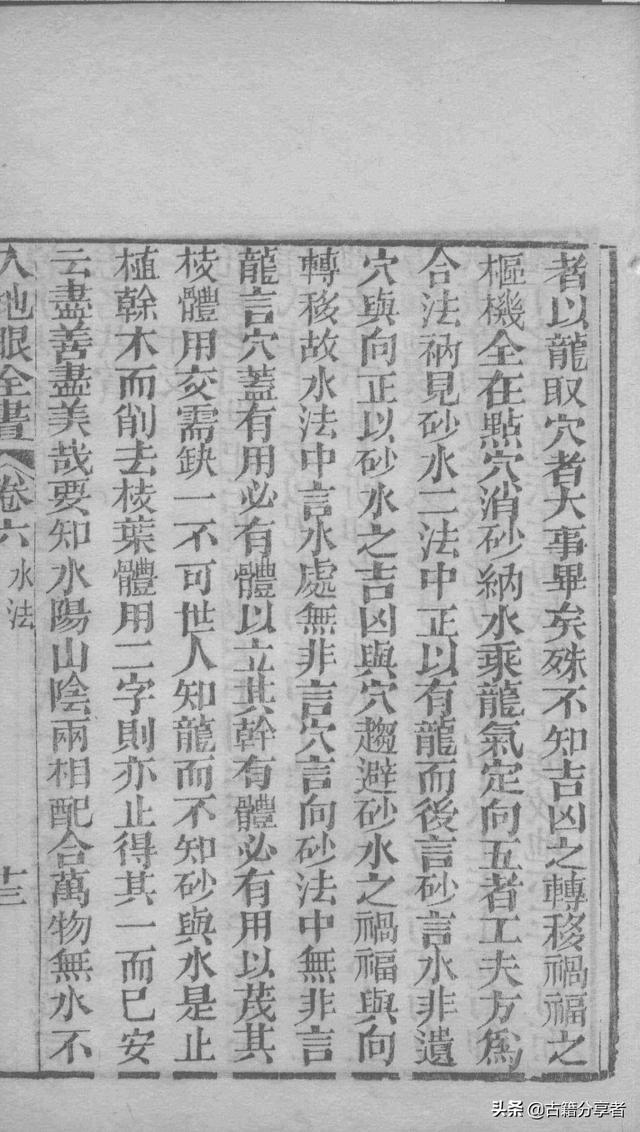 者以龍取穴者大事畢矣殊不知吉凶之轉移禍福之
樞機全在點穴消砂納水乘龍氣定向五者工夫方為
合法衲見砂水二法中正以有龍而後言砂言水非遺
穴與向正以砂水之吉凶與穴趨避砂水之禍福與向
轉移故水法中言水處無非言穴言向砂法中無非言
龍言穴蓋有用必有體以立其幹有體必有用以茂其
枝體用交需缺一不可世人知龍而不知砂與水是止
植榦木而削去枝葉體用二字則亦止得其一而已安
云盡善盡美哉要知水陽山陰兩相配合萬物無水不
人地眼全書 卷六 水法 十三
头条 @古籍分享者